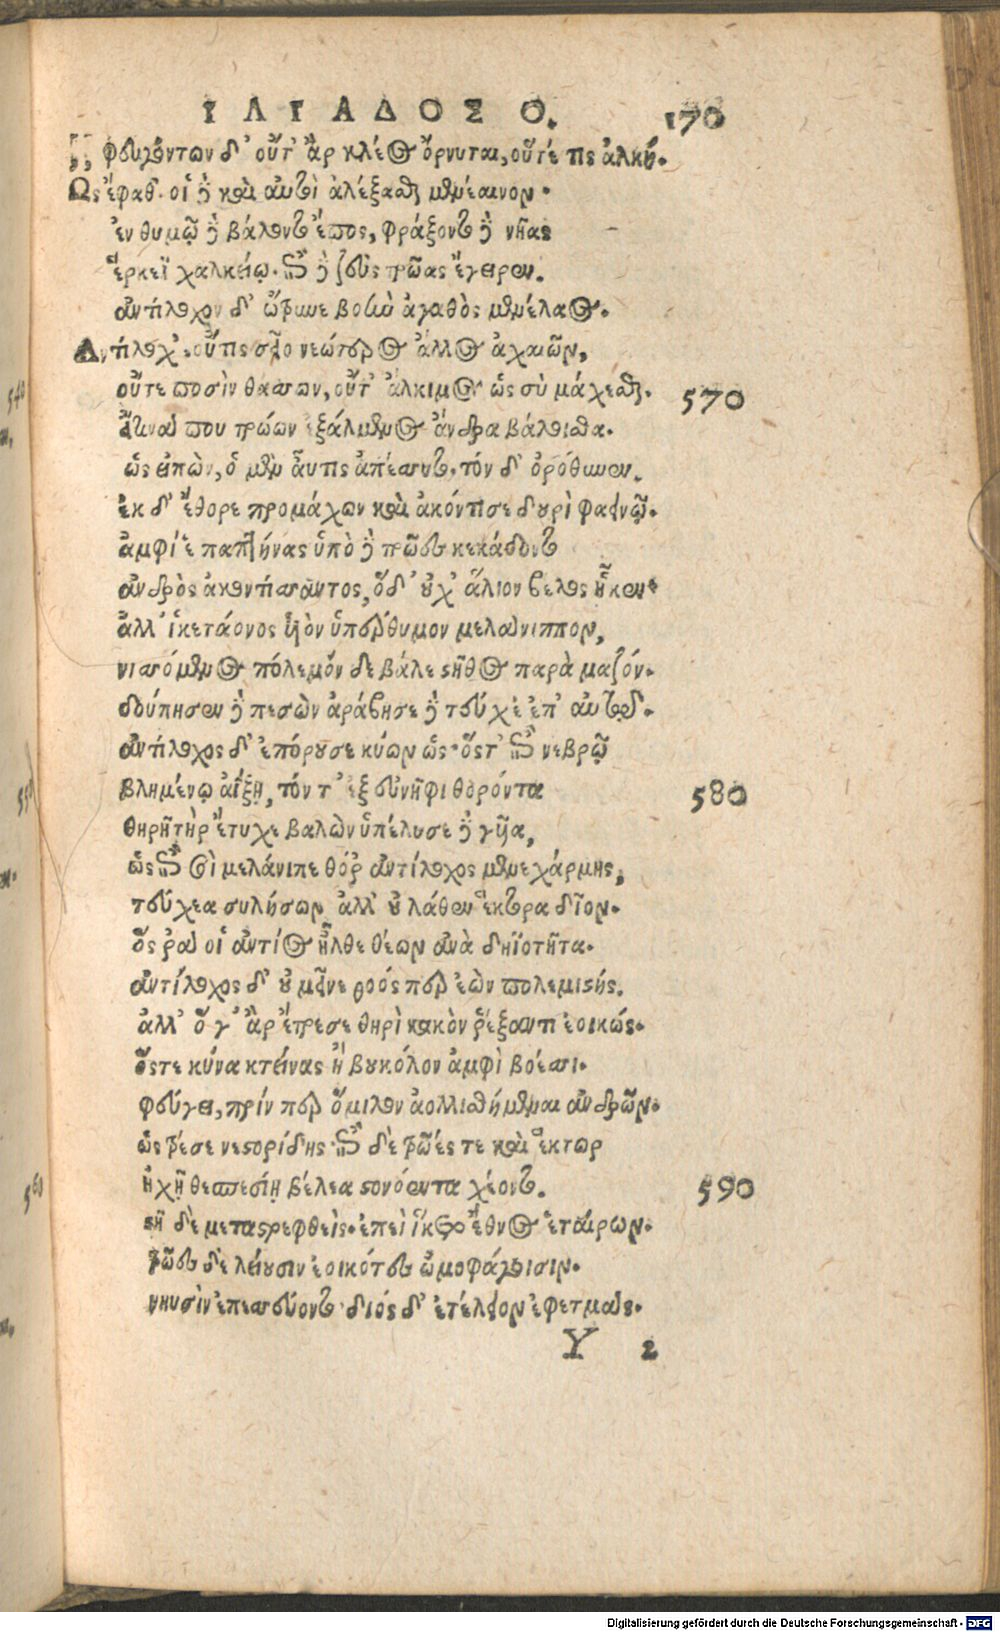 ΙΛΙΑΔΟΣ Ο. 170
φευγόντων δ' οὔτ' ἂρ κλέος ὄρνυται, οὔτέ τις ἀλκή.
Ως ἔφαθ· οἱ δὲ καὶ αὐτοὶ ἀλέξασθαι μενέαινον·
ἐν θυμῷ δὲ βάλοντο ἔπος, φράξοντο δὲ νῆας
ἕρκεϊ χαλκείῳ· ἐπὶ δὲ ζεὺς τρῶας ἔγειρεν.
ἀντίλοχον δ' ὤτρυνε βοὴν ἀγαθὸς μενέλαος.
Αντίλοχ', οὔτις σεῖο νεώτερος ἄλλος ἀχαιῶν,
οὔτε ποσὶν θάσσων, οὔτ' ἄλκιμος ὡς σὺ μάχεσθαι. 570
εἴ τινά που τρώων ἐξάλμενος ἄνδρα βάλοισθα.
ὣς εἰπὼν, ὁ μὲν αὖτις ἀπέσσυτο, τόν δ' ὀρόθυνεν.
ἐκ δ' ἔθορε προμάχων καὶ ἀκόντισε δουρὶ φαεινῷ.
ἀμφί ἑ παπτήνας ὑπὸ δὲ τρῶες κεκάδοντο
ἀνδρὸς ἀκοντίσσαντος, ὅδ' οὐχ' ἅλιον βέλος ἧκεν·
ἀλλ' ἱκετάονος υἱὸν ὑπέρθυμον μελάνιππον,
νισσόμενος πόλεμόν δε βάλε στῆθος παρὰ μαζόν.
δούπησεν δὲ πεσὼν ἀράβησε δὲ τεύχε' ἐπ' αὐτῷ.
ἀντίλοχος δ' ἐπόρουσε κύων ὥς· ὅστ' ἐπὶ νεβρῷ
βλημένῳ ἀΐξῃ, τόν τ' ἐξ εὐνῆφι θορόντα 580
θηρητὴρ ἔτυχε βαλὼν ὑπέλυσε δὲ γυῖα,
ὣς ἐπὶ σοὶ μελάνιππε θόρ' ἀντίλοχος μενεχάρμης,
τεύχεα συλήσων ἀλλ' οὐ λάθεν ἕκτορα δῖον.
ὅς ῥά οἱ ἀντίος ἦλθε θέων ἀνὰ δηϊοτῆτα.
ἀντίλοχος δ' οὐ μεῖνε θοός περ ἐὼν πολεμιστής.
ἀλλ' ὅ γ' ἂρ ἔτρεσε θηρὶ κακὸν ῥέξαντι ἐοικώς.
ὅστε κύνα κτείνας ἢ βουκόλον ἀμφὶ βόεσσι.
φεύγει, πρίν περ ὅμιλον ἀολλισθήμεναι ἀνδρῶν.
ὣς τρέσε νεστορίδης· ἐπὶ δὲ τρῶές τε καὶ ἕκτωρ
ἠχῇ θεσπεσίῃ βέλεα στονόεντα χέοντο. 590
στῆ δὲ μεταστρεφθείς· ἐπεὶ ἵκετο ἔθνος ἑταίρων.
τρῶες δὲ λείουσιν ἐοικότες ὠμοφάγοισιν.
νηυσὶν ἐπεσσεύοντο· διός δ' ἐτέλειον ἐφετμάς.
Y 2
540
550
560
Digitalisierung gefördert durch die Deutsche Forschungsgemeinschaft - DFG